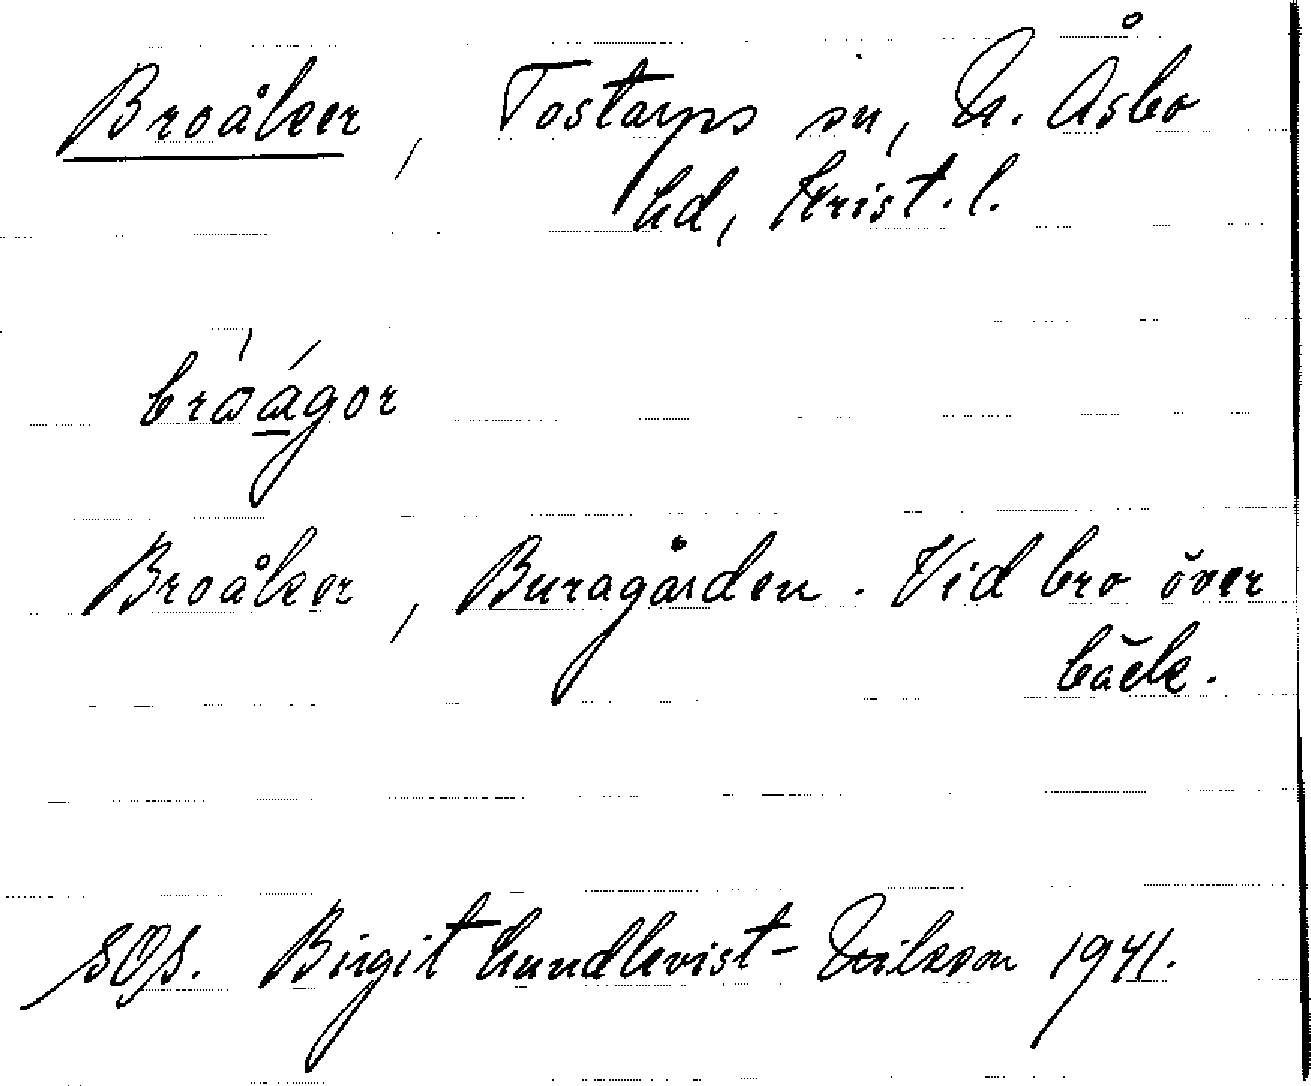 Broåker, Tostarps sn, N. Åsbo
hd, Krist. l.
broágor
Broåker, Buragården. Vid bro över
bäck.
SOS. Birgit Lundkvist-Nilsson 1941.